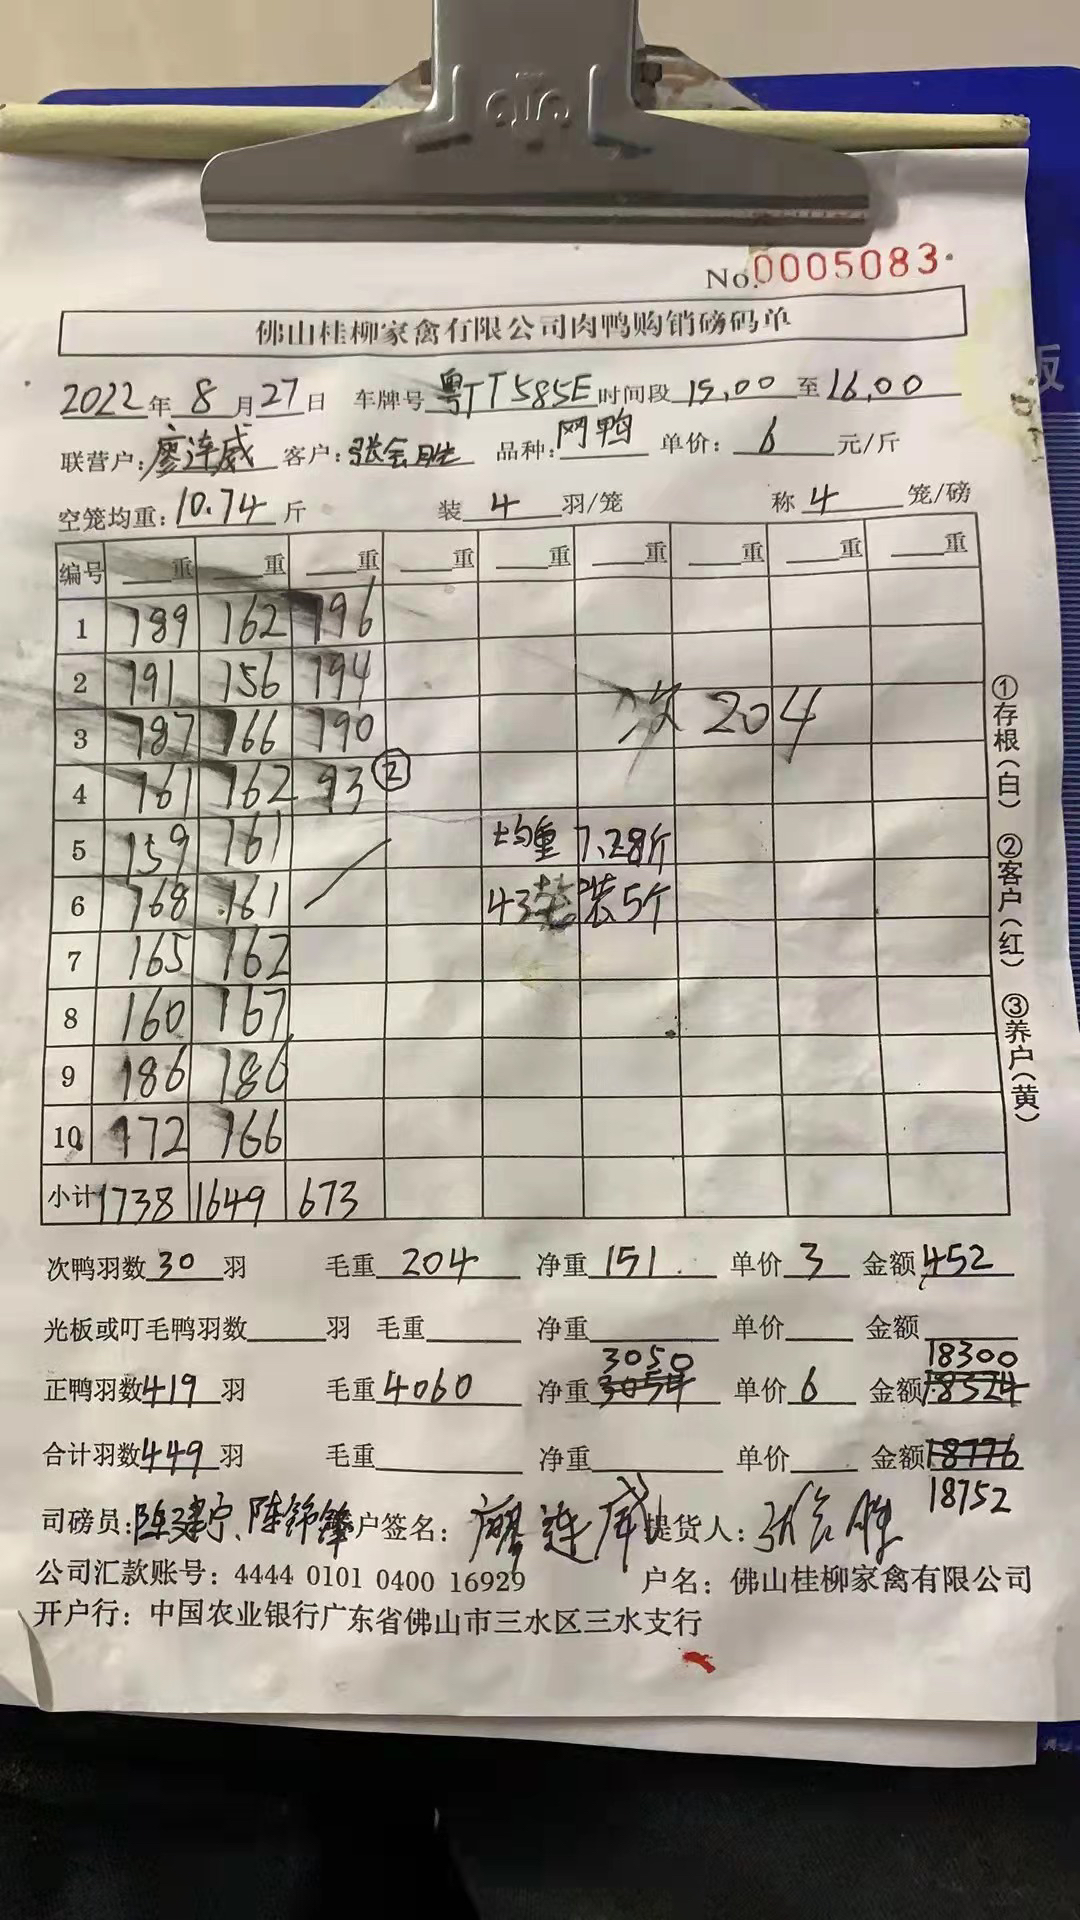 No.0005083
佛山桂柳家禽有限公司肉鸭购销磅码单
2022年8月27日 车牌号粤TT585E时间段15,00至16,00
联营户:廖连威 客户:张会胜 品种:网鸭 单价:6元/斤
空笼均重:10.74斤 装4羽/笼 称4笼/磅
编号 重 重 重 重 重 重 重 重 重
1 189 162 196
2 191 156 194
3 187 166 190 次 204
4 161 162 93 ②
5 159 161 均重 7.28斤
6 168 161 43 装5个
7 165 162
8 160 167
9 186 186
10 172 166
小计 1738 1649 673
①存根(白) ②客户(红) ③养户(黄)
次鸭羽数30羽 毛重204 净重151 单价3 金额452
光板或叮毛鸭羽数 羽 毛重 净重 单价 金额
3050 18300
正鸭羽数419羽 毛重4060 净重3054 单价6 金额18324
合计羽数449羽 毛重 净重 单价 金额18776
18752
司磅员:陈建宁、陈锦锋 户签名:廖连威 提货人:张会胜
公司汇款账号:4444 0101 0400 16929 户名:佛山桂柳家禽有限公司
开户行:中国农业银行广东省佛山市三水区三水支行